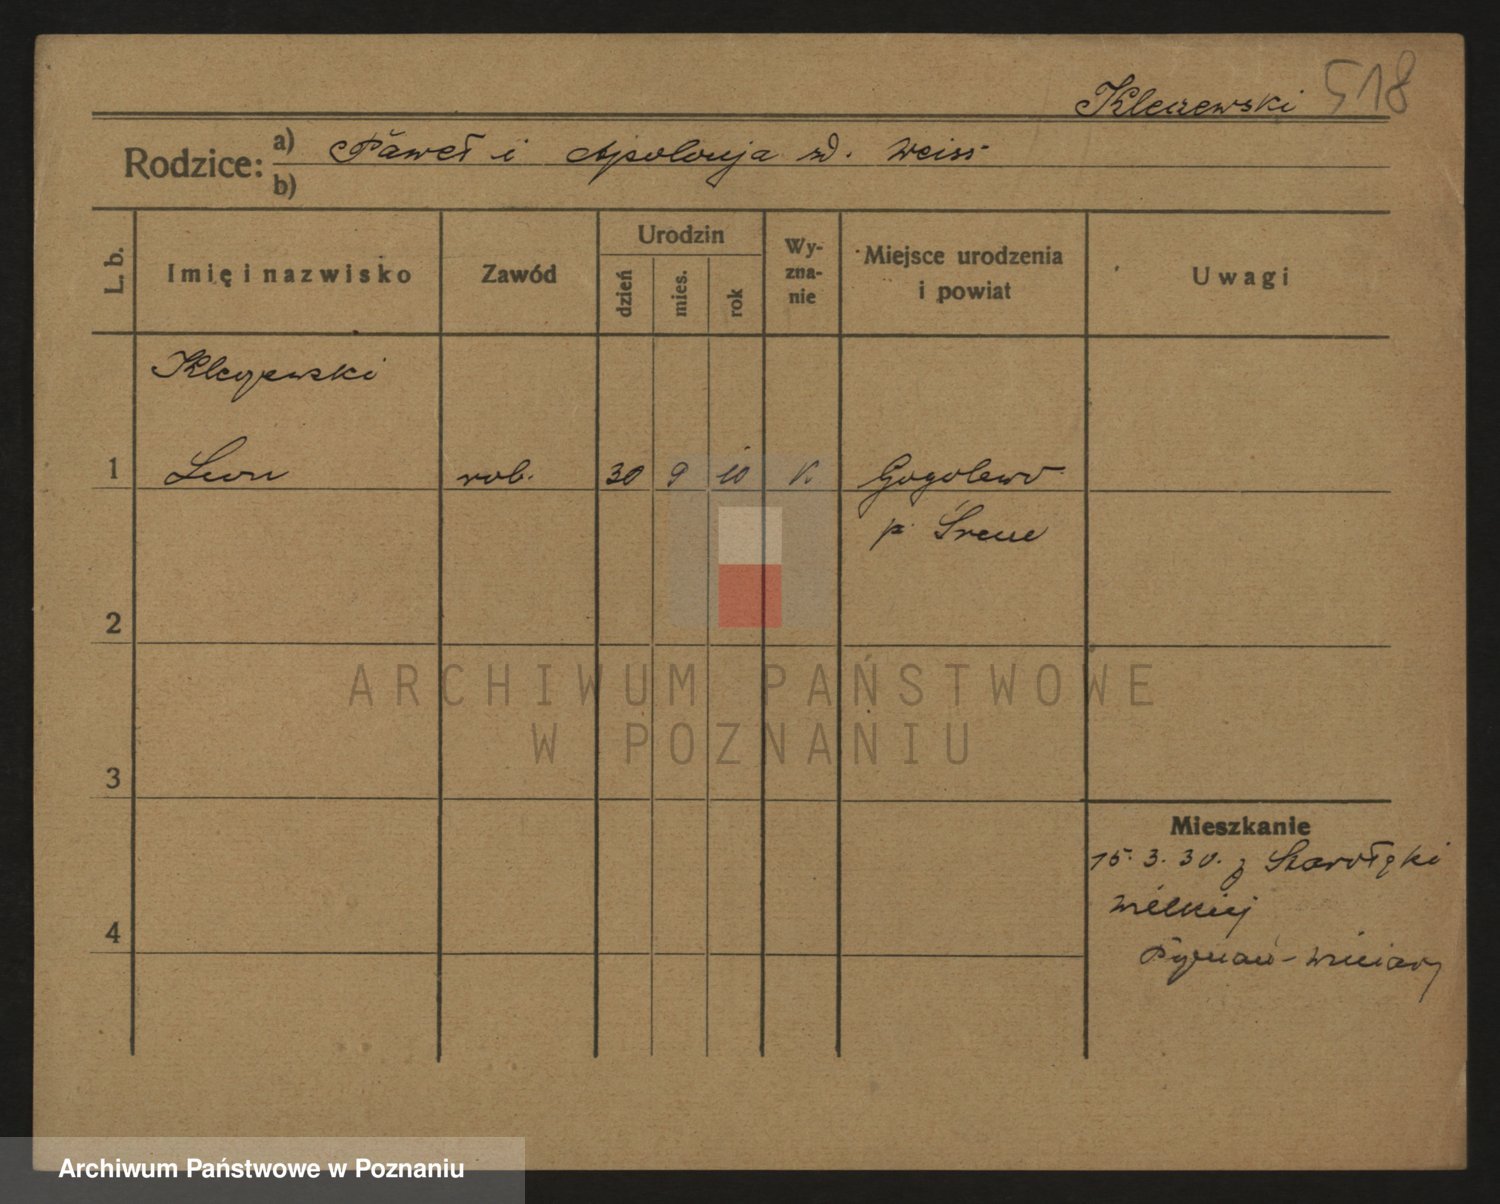 Kleczewski 518
Rodzice: a) Paweł i Apolonja zd. Weiss
b)
L. b.
Imię i nazwisko
Zawód
Urodzin
dzień
mies.
rok
Wy-
zna-
nie
Miejsce urodzenia
i powiat
Uwagi
Kleczewski
1 Leon rob. 30 9 10 K Gogolewo
p. Śrem
2
3
4
Mieszkanie
15. 3. 30. z Starołęki
wielkiej
Winiary
ARCHIWUM PAŃSTWOWE
W POZNANIU
Archiwum Państwowe w Poznaniu